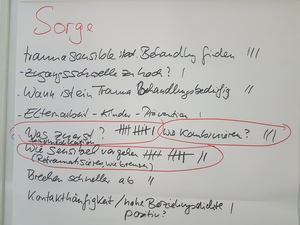 Sorge
traumasensible stat. Behandlung finden |||
- Zugangsschwelle zu hoch? |
- Wann ist ein Trauma Behandlungsbedürftig ||
- Elternarbeit - Kinder - Prävention |
Was zuerst? |||| |||| | Wo kombinieren? |||
Wie sensibel vorgehen |||| |||| ||
(Retraumatisieren, wo bremsen)
Brechen schneller ab ||
Kontakthäufigkeit / hohe Beziehungsdichte |
positiv?